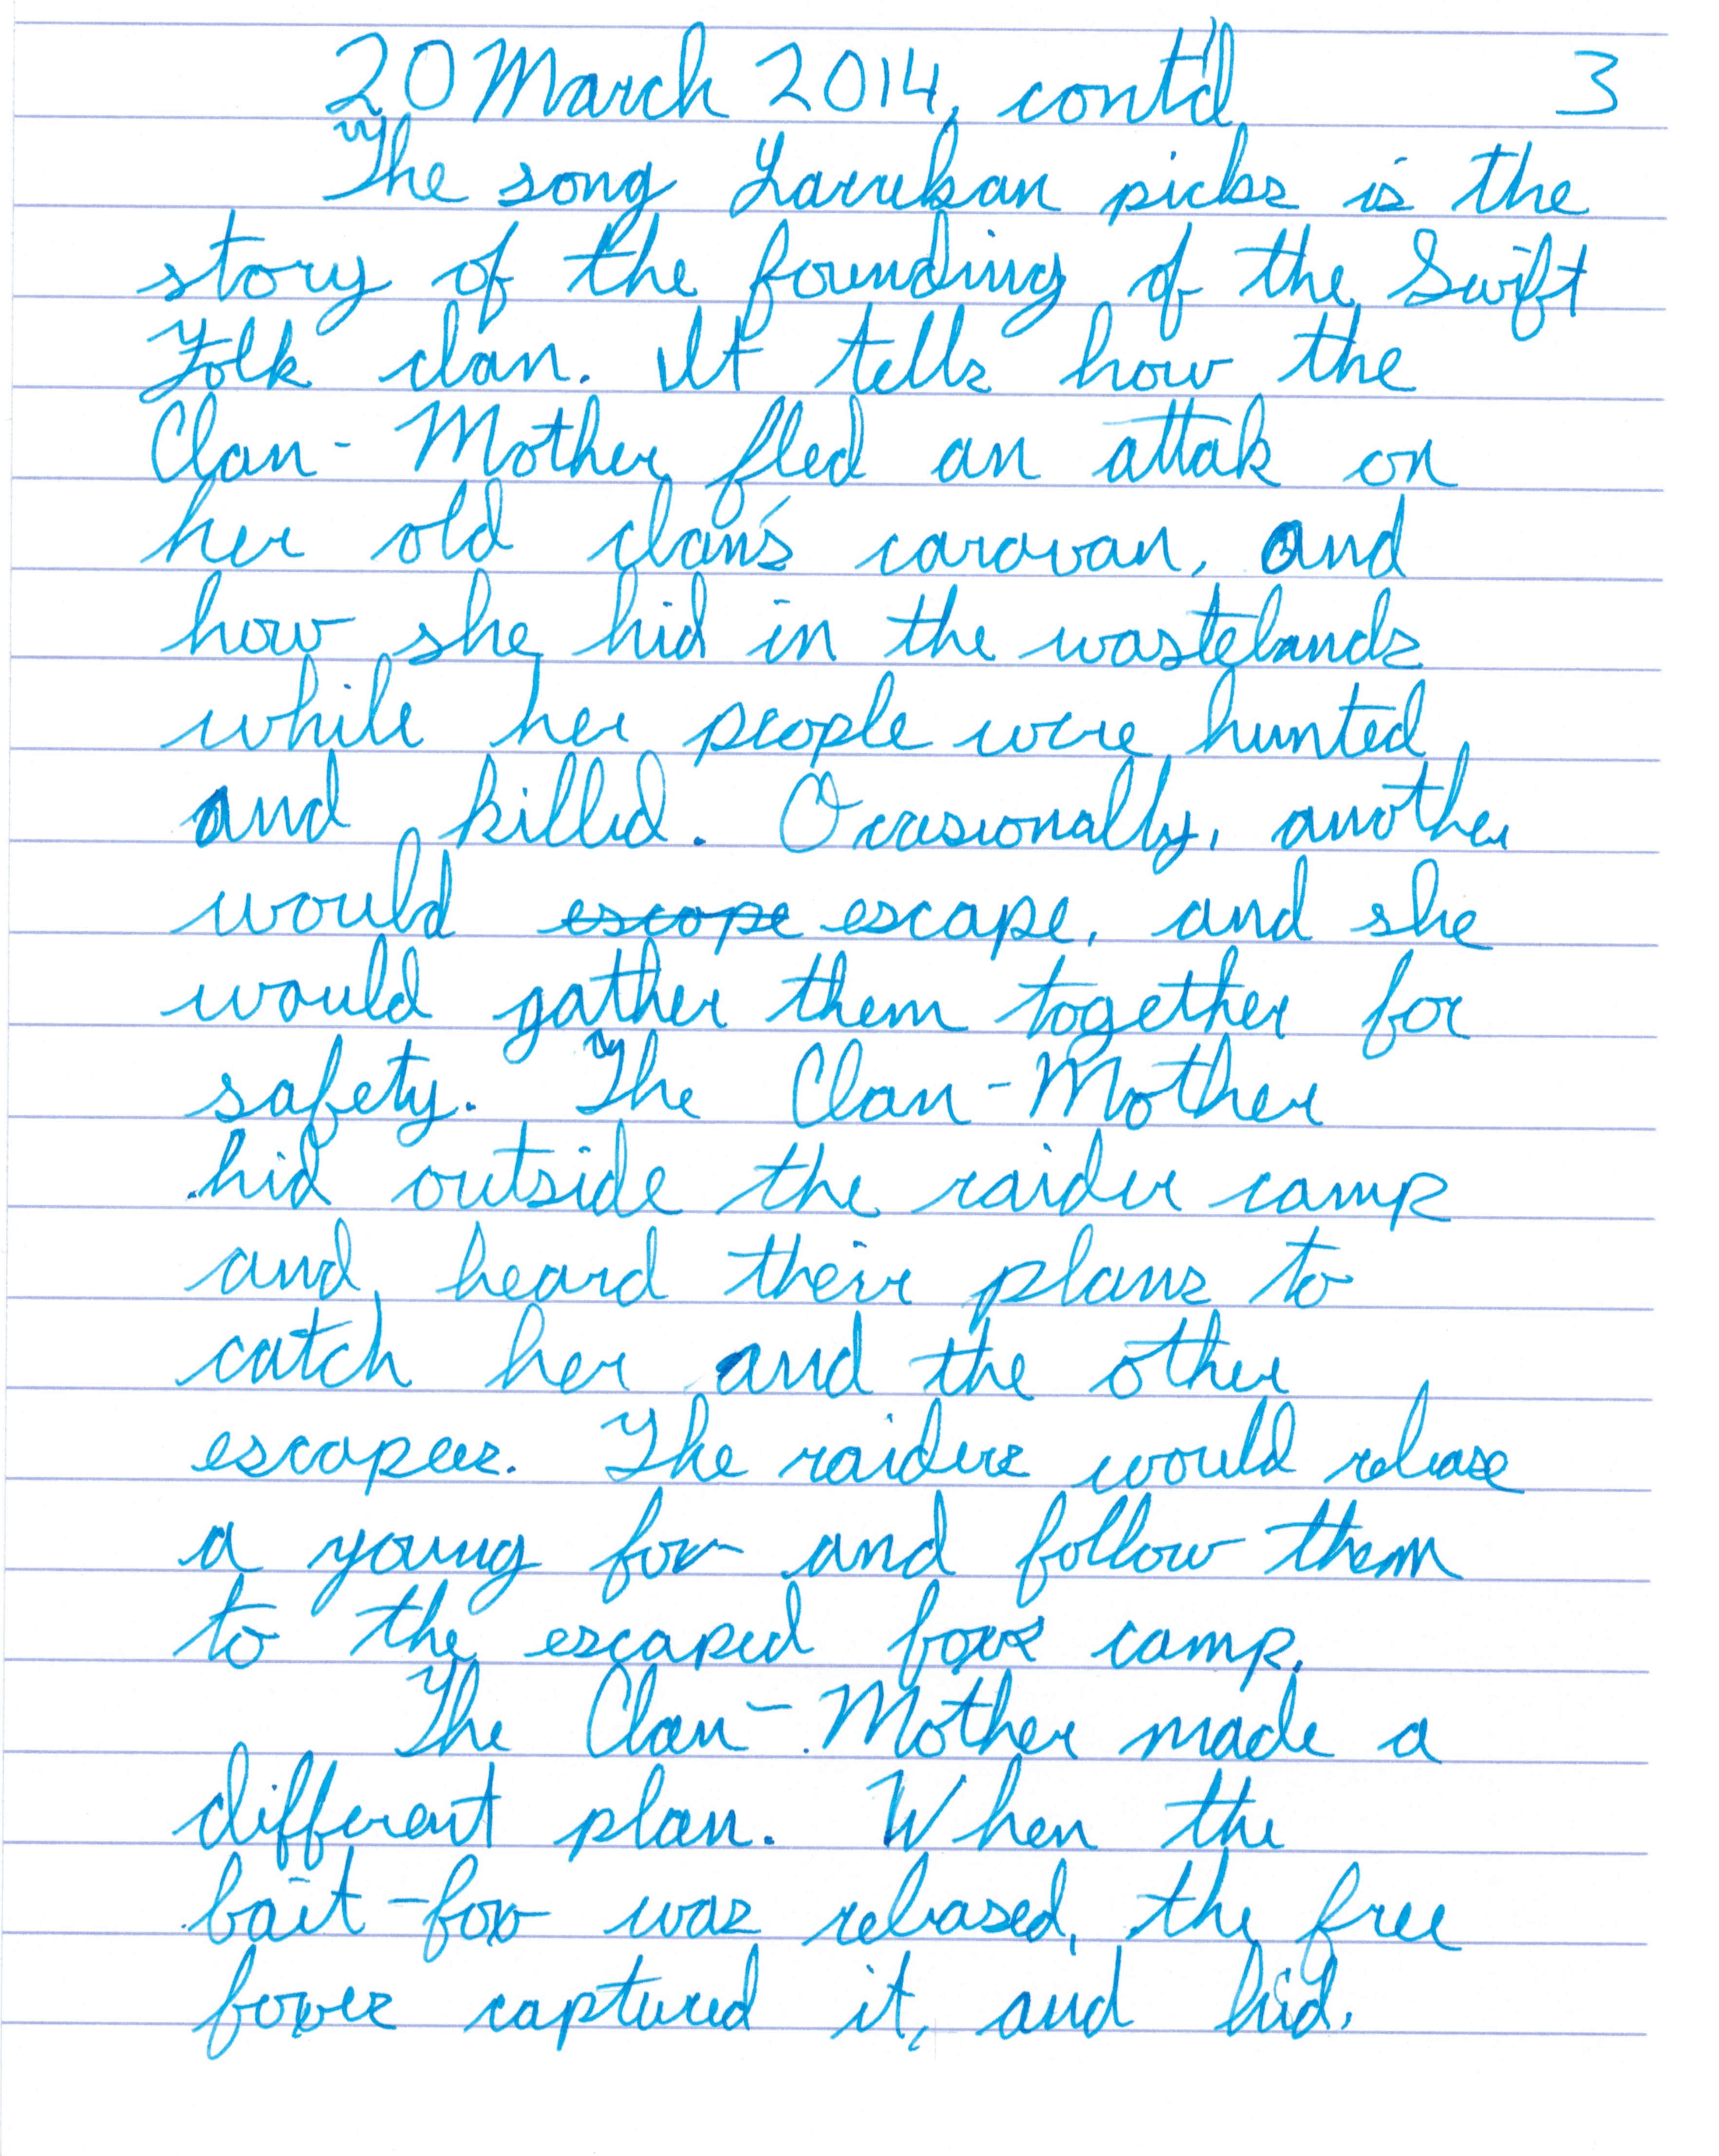 20 March 2014, cont'd 3
The song Larrekan picks is the
story of the founding of the Swift
Folk clan. It tells how the
Clan-Mother fled an attak on
her old clan's caravan, and
how she hid in the wastelands
while her people were hunted
and killed. Occasionally, another
would escape escape, and she
would gather them together for
safety. The Clan-Mother
hid outside the raider camp
and heard their plans to
catch her and the other
escapees. The raiders would release
a young fox and follow them
to the escaped foxes camp.
The Clan-Mother made a
different plan. When the
bait-fox was released, the free
foxes captured it, and hid.